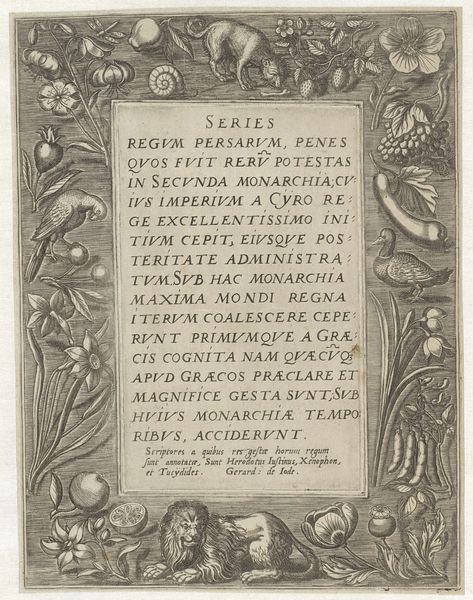 SERIES
REGVM PERSARVM, PENES
QVOS FVIT RERV̄ POTESTAS
IN SECVNDA MONARCHIA; CV⸗
IVS IMPERIVM A CYRO RE⸗
GE EXCELLENTISSIMO INI⸗
TIVM CEPIT, EIVSQVE POS⸗
TERITATE ADMINISTRA⸗
TVM, SVB HAC MONARCHIA
MAXIMA MONDI REGNA
ITERVM COALESCERE CEPE⸗
RVNT PRIMVMQVE A GRÆ⸗
CIS COGNITA NAM QVÆCV̄Q;
APVD GRÆCOS PRÆCLARE ET
MAGNIFICE GESTA SVNT, SVB
HVIVS MONARCHIÆ TEMPO
RIBVS, ACCIDERVNT.
Scriptores a quibus res gestæ horum regum
sunt annotatæ, Sunt Herodotus Iustinus, Xenophon,
et Tucydides. Gerard: de Iode.